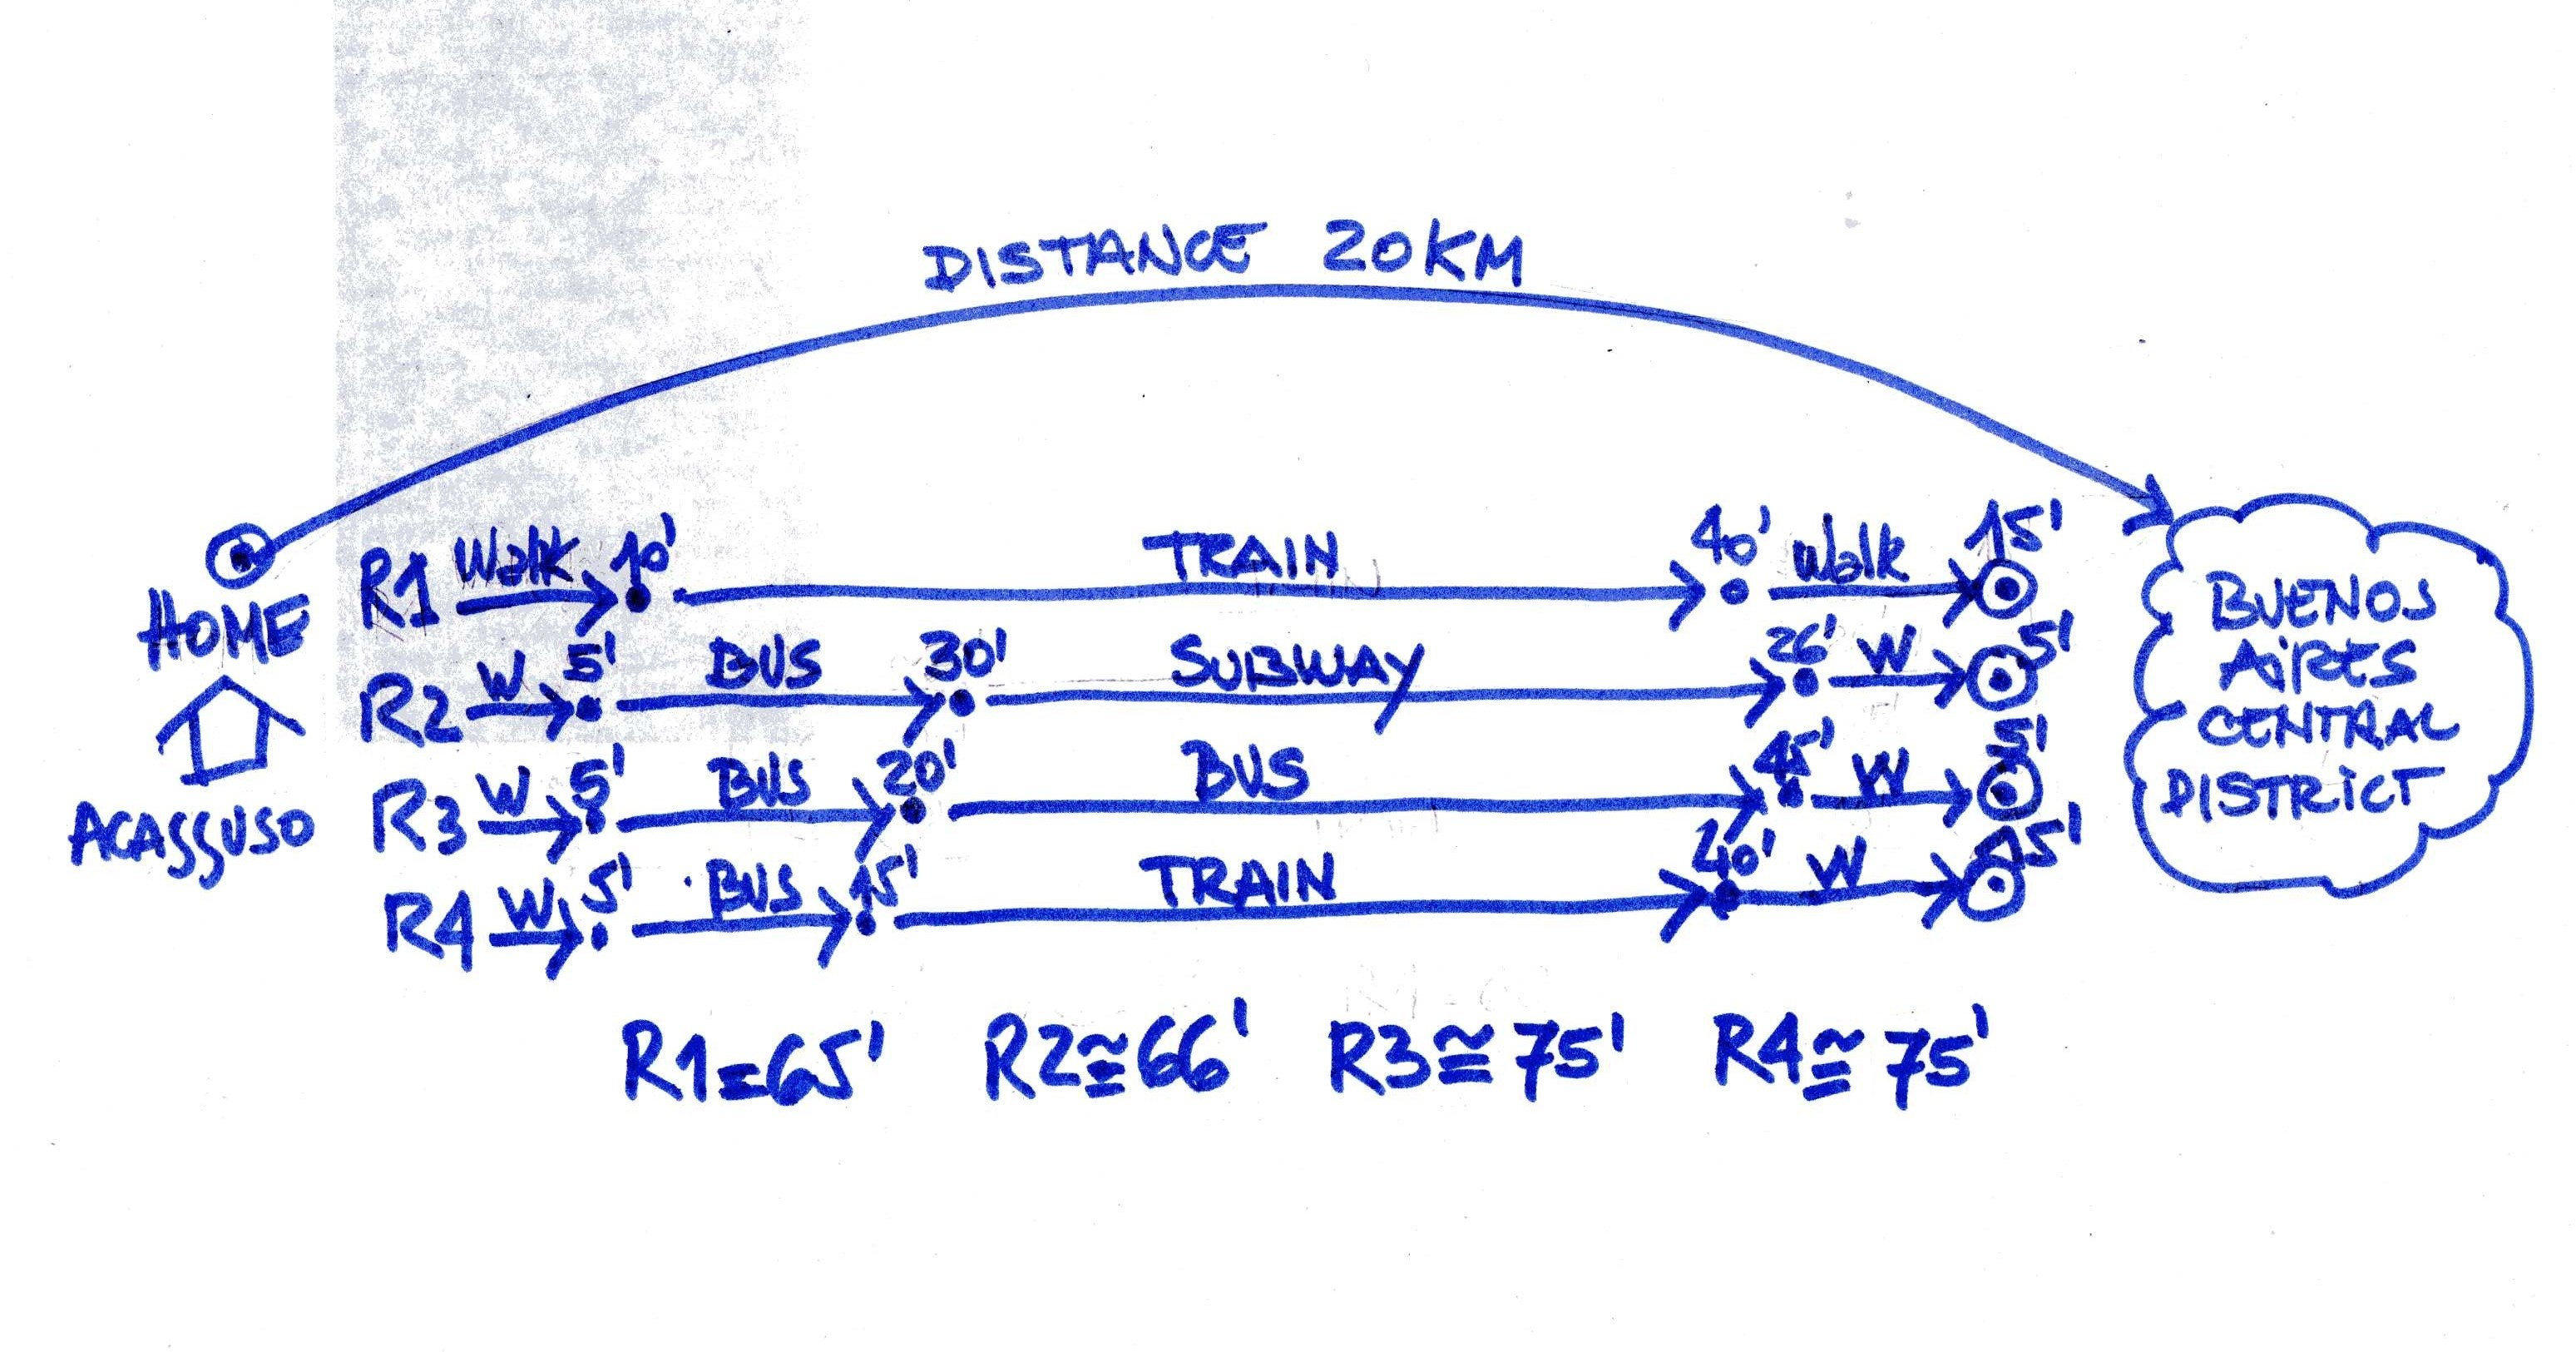 DISTANCE 20KM
HOME
ACASSUSO
R1 Walk 10' TRAIN 40' Walk 15'
R2 W 5' BUS 30' SUBWAY 26' W 5'
R3 W 5' BUS 20' BUS 45' W 5'
R4 W 5' BUS 15' TRAIN 40' W 15'
BUENOS
AIRES
CENTRAL
DISTRICT
R1=65' R2≅66' R3≅75' R4≅75'